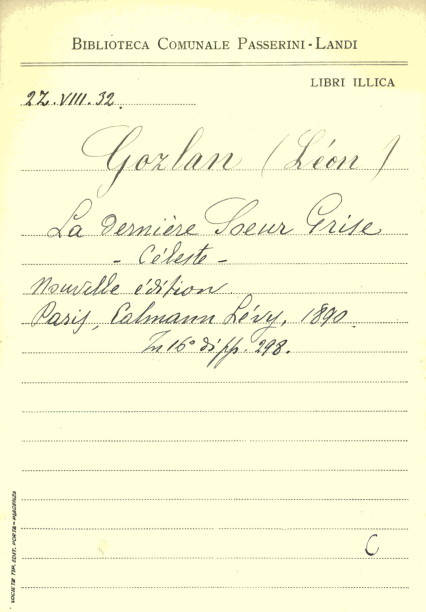 BIBLIOTECA COMUNALE PASSERINI-LANDI
LIBRI ILLICA
22.VIII.32.
Gozlan (Léon)
La dernière Soeur Grise
- Céleste -
Nouvelle édition
Paris, Calmann Lévy, 1890.
In 16° di pp. 298.
C
SOCIETÀ TIP. EDIT. PORTA - PIACENZA